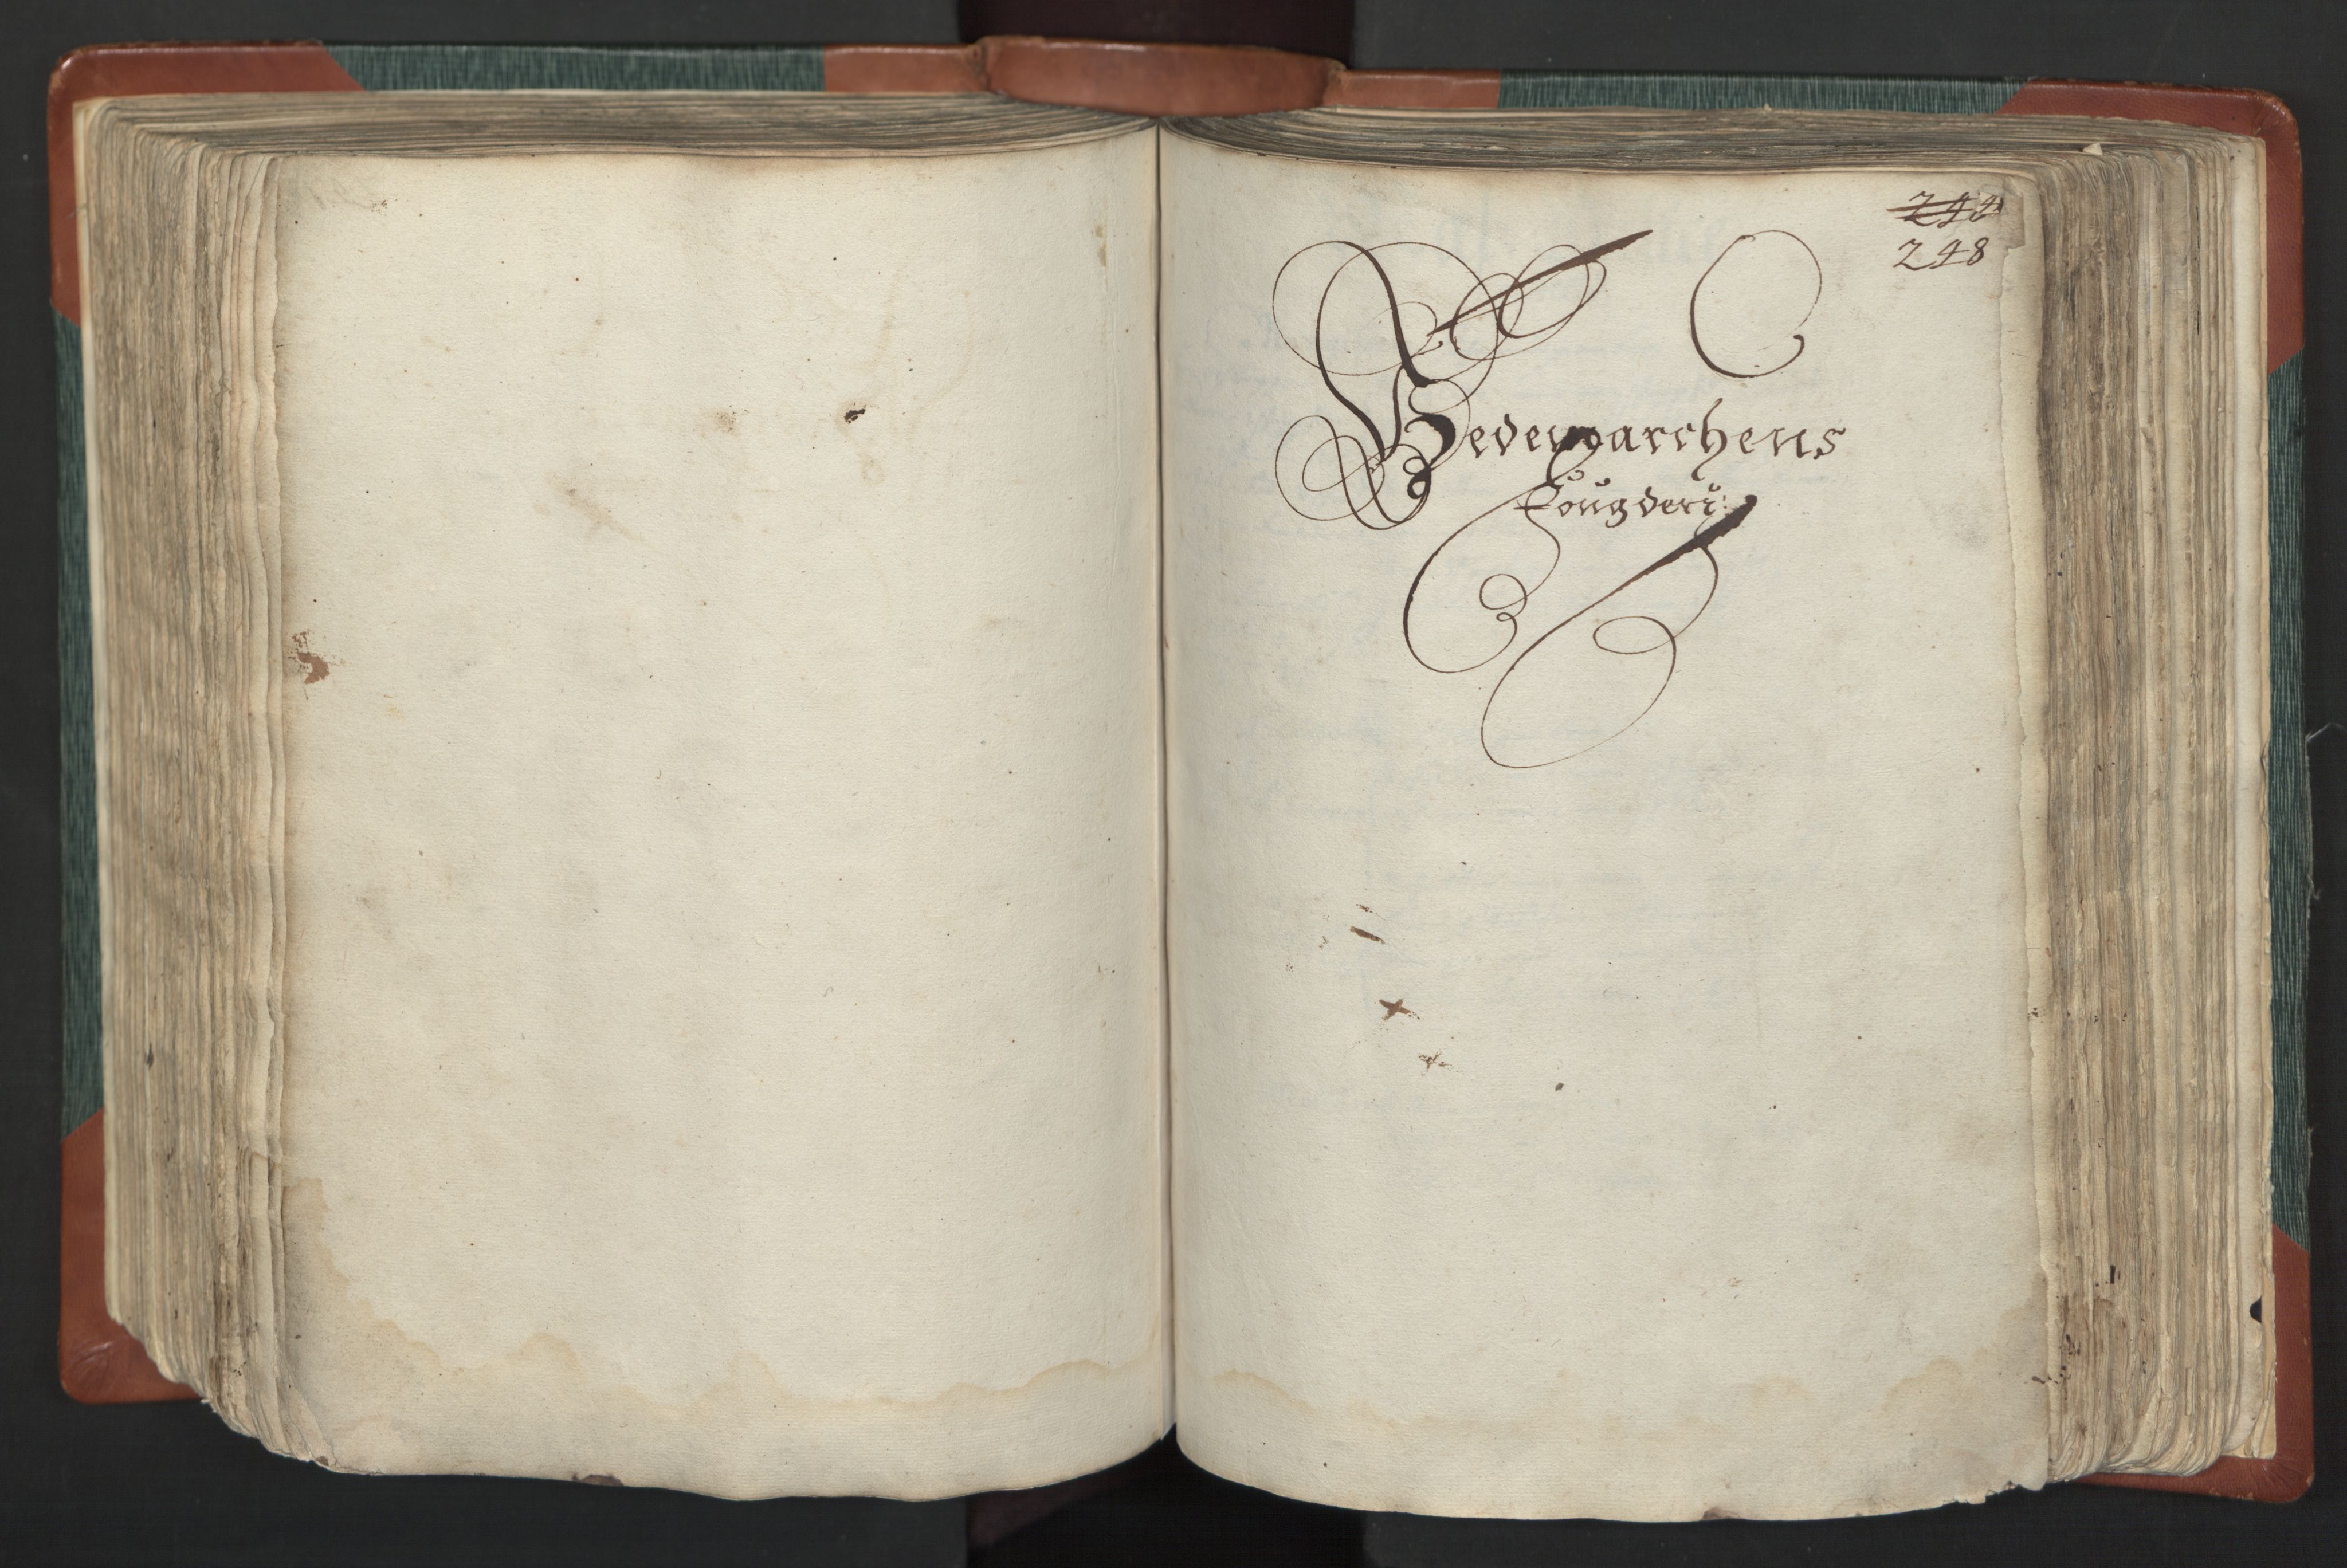 248
Hedemarchens
Fougderij